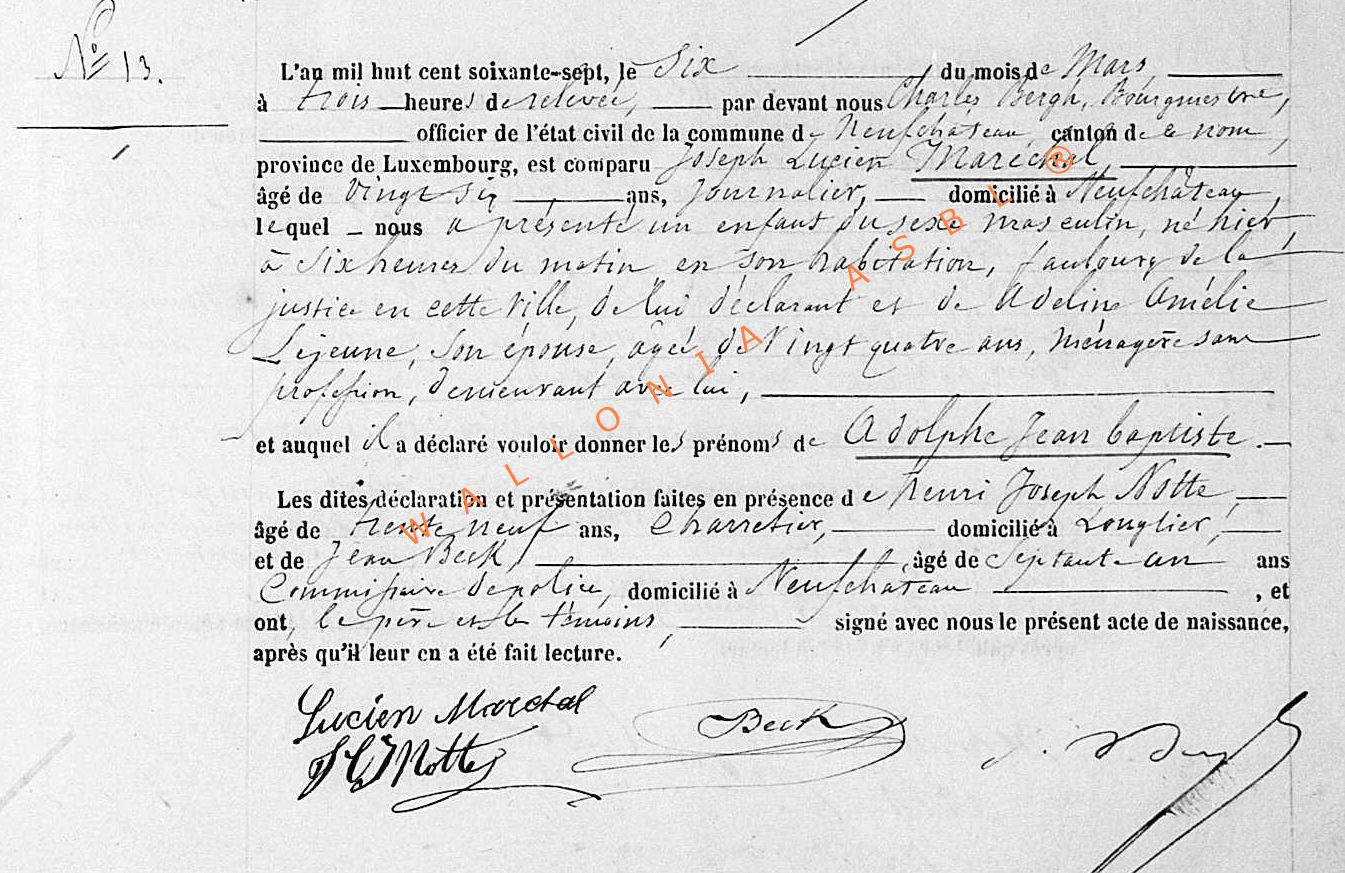 N° 13.
L'an mil huit cent soixante-sept, le Six du mois de Mars,
à trois heures de relevée, par devant nous Charles Bergh, Bourgmestre,
officier de l'état civil de la commune de Neufchateau canton de ce nom,
province de Luxembourg, est comparu Joseph Lucien Maréchal,
âgé de Vingt six ans, Journalier, domicilié à Neufchateau,
lequel nous a présenté un enfant du sexe masculin, né hier,
à Six heures du matin en son habitation, faubourg de la
justice en cette Ville, de lui déclarant et de Adeline Amélie
Lejeune, son épouse, agée de Vingt quatre ans, ménagère sans
profession, demeurant avec lui,
et auquel il a déclaré vouloir donner les prénoms de Adolphe Jean Baptiste.
Les dites déclaration et présentation faites en présence de henri Joseph Notte,
âgé de trente neuf ans, Charretier, domicilié à Longlier,
et de Jean Beck, âgé de septante un ans
Commissaire de police, domicilié à Neufchateau, et
ont, le père et les témoins, signé avec nous le présent acte de naissance,
après qu'il leur en a été fait lecture.
Lucien Marechal
Beck
HJ Notte
WALLONIA ASBL ®